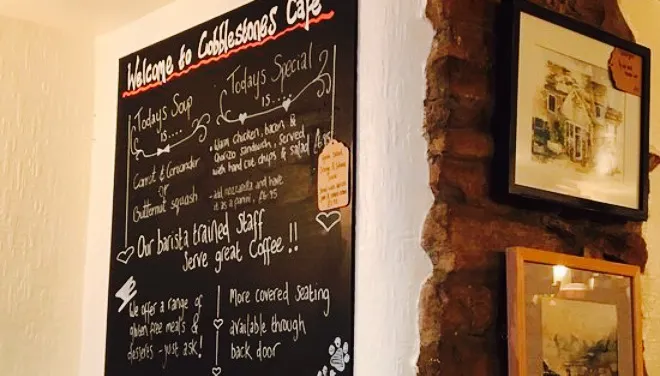 Welcome to Cobblestones Cafe
Todays Soup
is....
Carrot & Coriander
or
Butternut squash
Todays Special
is....
Warm chicken, bacon &
Chorizo sandwich, served
with hand cut chips & salad £6.95
- add mozzarella and have
it as a panini, £6.95
Our barista trained Staff
Serve great Coffee!!
We offer a range of
gluten free meals &
desserts - just ask!
More covered Seating
available through
back door